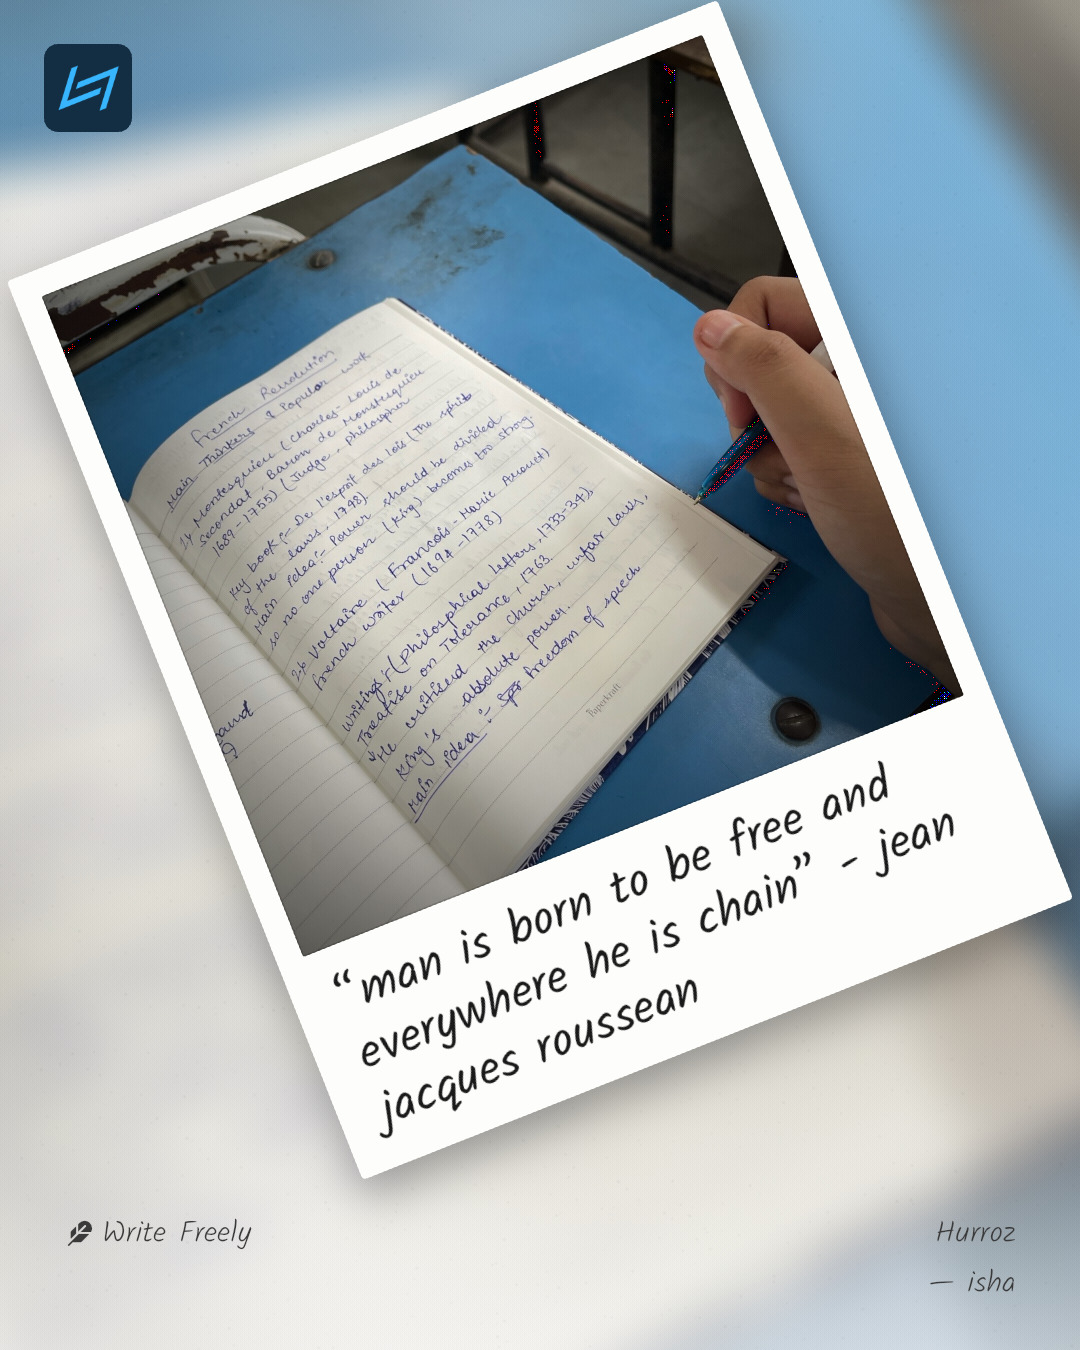 French Revolution
Main Thinkers & Popular work
1} Montesquieu (Charles-Louis de
Secondat, Baron de Monstesquieu
1689-1755) (Judge, philospher
Key book:- De l'esprit des lois (The spirit
of the laws, 1748).
Main idea:- Power should be divided
so no one person (King) becomes too strong.
2} Voltaire (Francois-Marie Arouet)
french writer (1694-1778)
Writings:- (Philosphical letters, 1733-34),
Treatise on Tolerance, 1763.
"He critised the church, unfair laws,
King's absolute power.
Main idea :- for freedom of speech
and
Paperkraft
“man is born to be free and
everywhere he is chain” - jean
jacques roussean
Write Freely
Hurroz
— isha